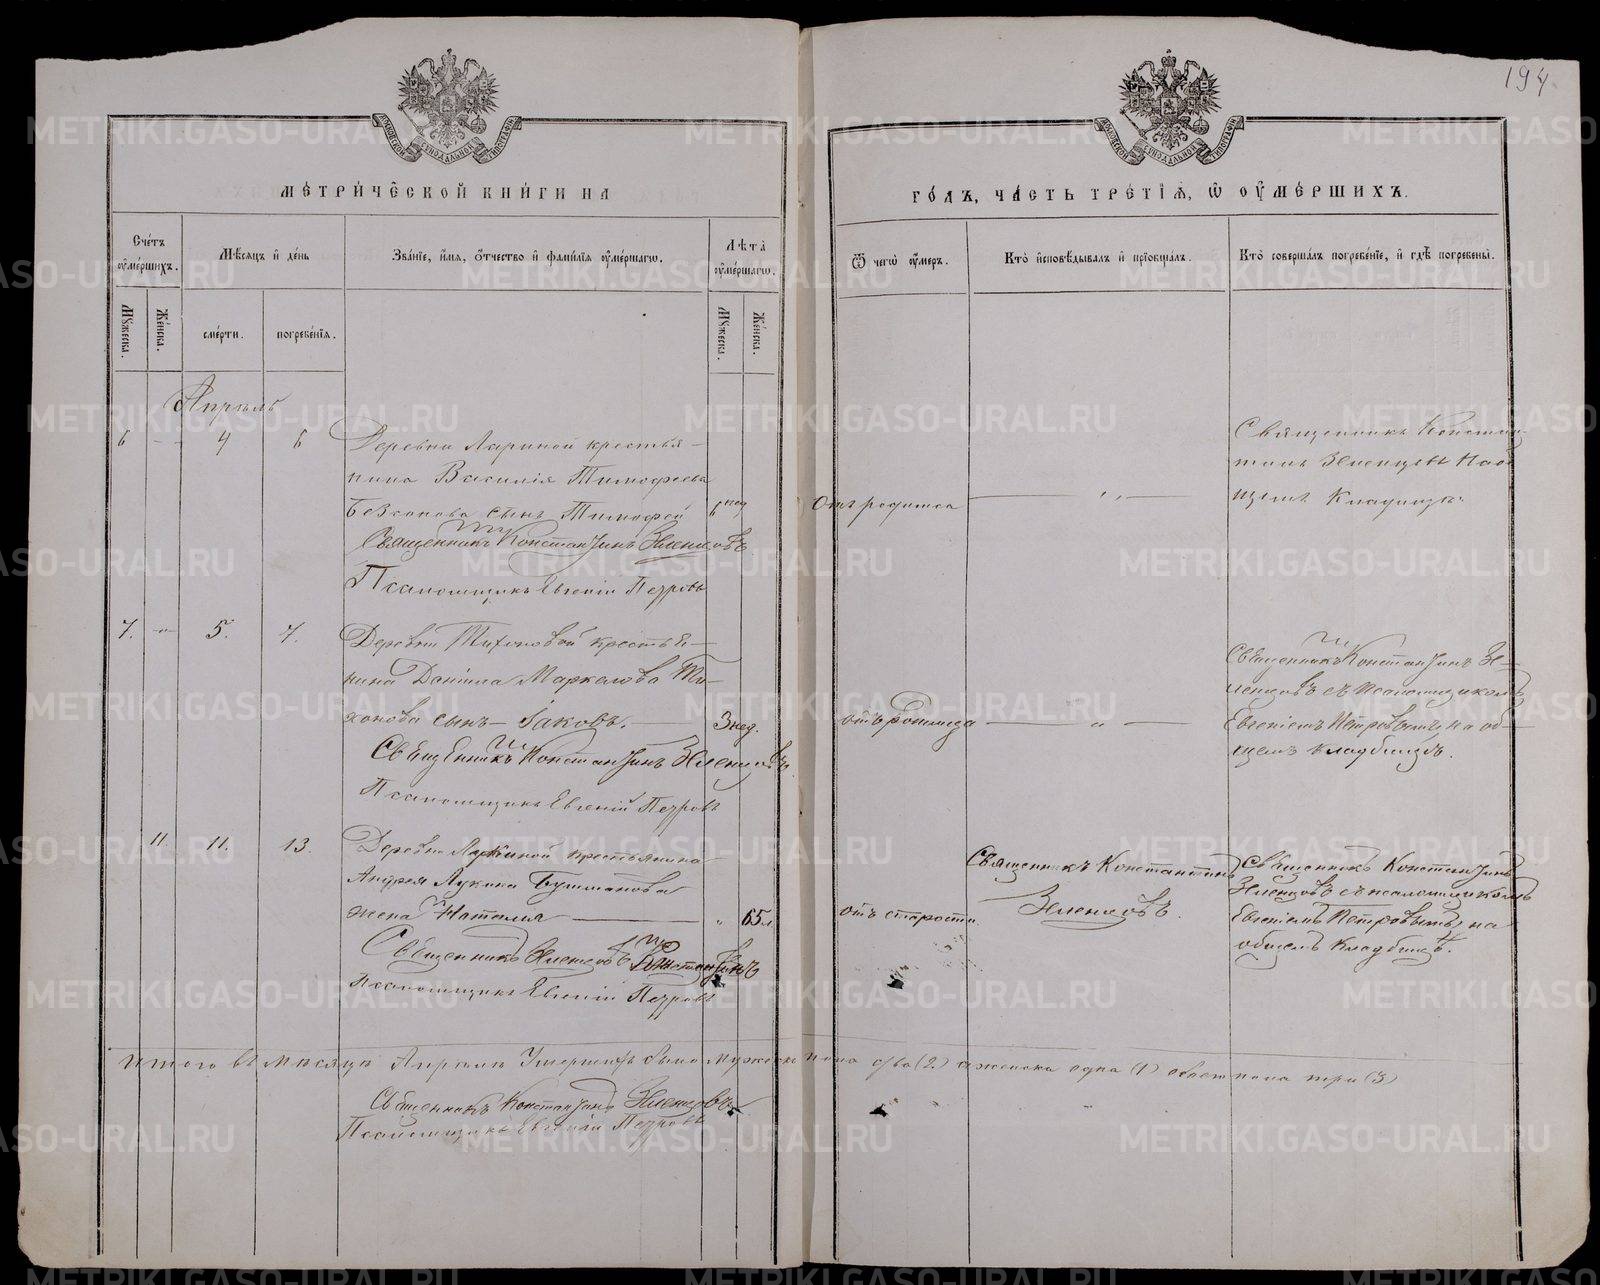 194
МОСКОВСКОЙ СѴНОДАЛЬНОЙ ТИПОГРАФІИ
МЕТРИЧЕСКОЙ КНИГИ НА
ГОДЪ, ЧАСТЬ ТРЕТІЯ, Ѡ ОУМЕРШИХЪ.
Счетъ оумершихъ.
Мѣсяцъ и день
Званіе, имя, отчество и фамилія оумершагѡ.
Лѣта оумершагѡ.
Ѿ чегѡ оумеръ.
Кто исповѣдывалъ и пріобщалъ.
Кто совершалъ погребеніе, и гдѣ погребены.
Мꙋжеска.
Женска.
смерти.
погребенія.
Мꙋжеска.
Женска.
Апрѣль
6 4 6
Деревни Лариной крестья-
нина Василія Тимофеева
сынъ Тимофей 6 нед
Священникъ Константинъ
Псаломщикъ Евгеній Петровъ
отъ родимца
Священникъ Констан-
тинъ на об-
щемъ кладбищѣ.
7. " 5. 7.
Деревни Тихоновой крестья-
нина Даніила Маркелова Ти-
хонова сынъ - Іаковъ. 3 нед.
Священникъ Константинъ
Псаломщикъ Евгеній Петровъ
отъ родимца "
Священникъ Константинъ
съ псаломщикомъ
Евгеніемъ Петровымъ, на об-
щемъ кладбищѣ.
11. 11. 13.
Деревни крестьянина
Андрея Лукина Бушманова
жена Наталья " 65 л.
Священникъ Константинъ
Псаломщикъ Евгеній Петровъ
отъ старости
Священникъ Константинъ
Священникъ Константинъ
съ псаломщикомъ
Евгеніемъ Петровымъ, на
общемъ кладбищѣ.
Итого въ мѣсяцѣ Апрѣлѣ умершихъ было мужеска пола два (2) женска одна (1) обоего пола три (3)
Священникъ Константинъ
Псаломщикъ Евгеній Петровъ
METRIKI.GASO-URAL.RU